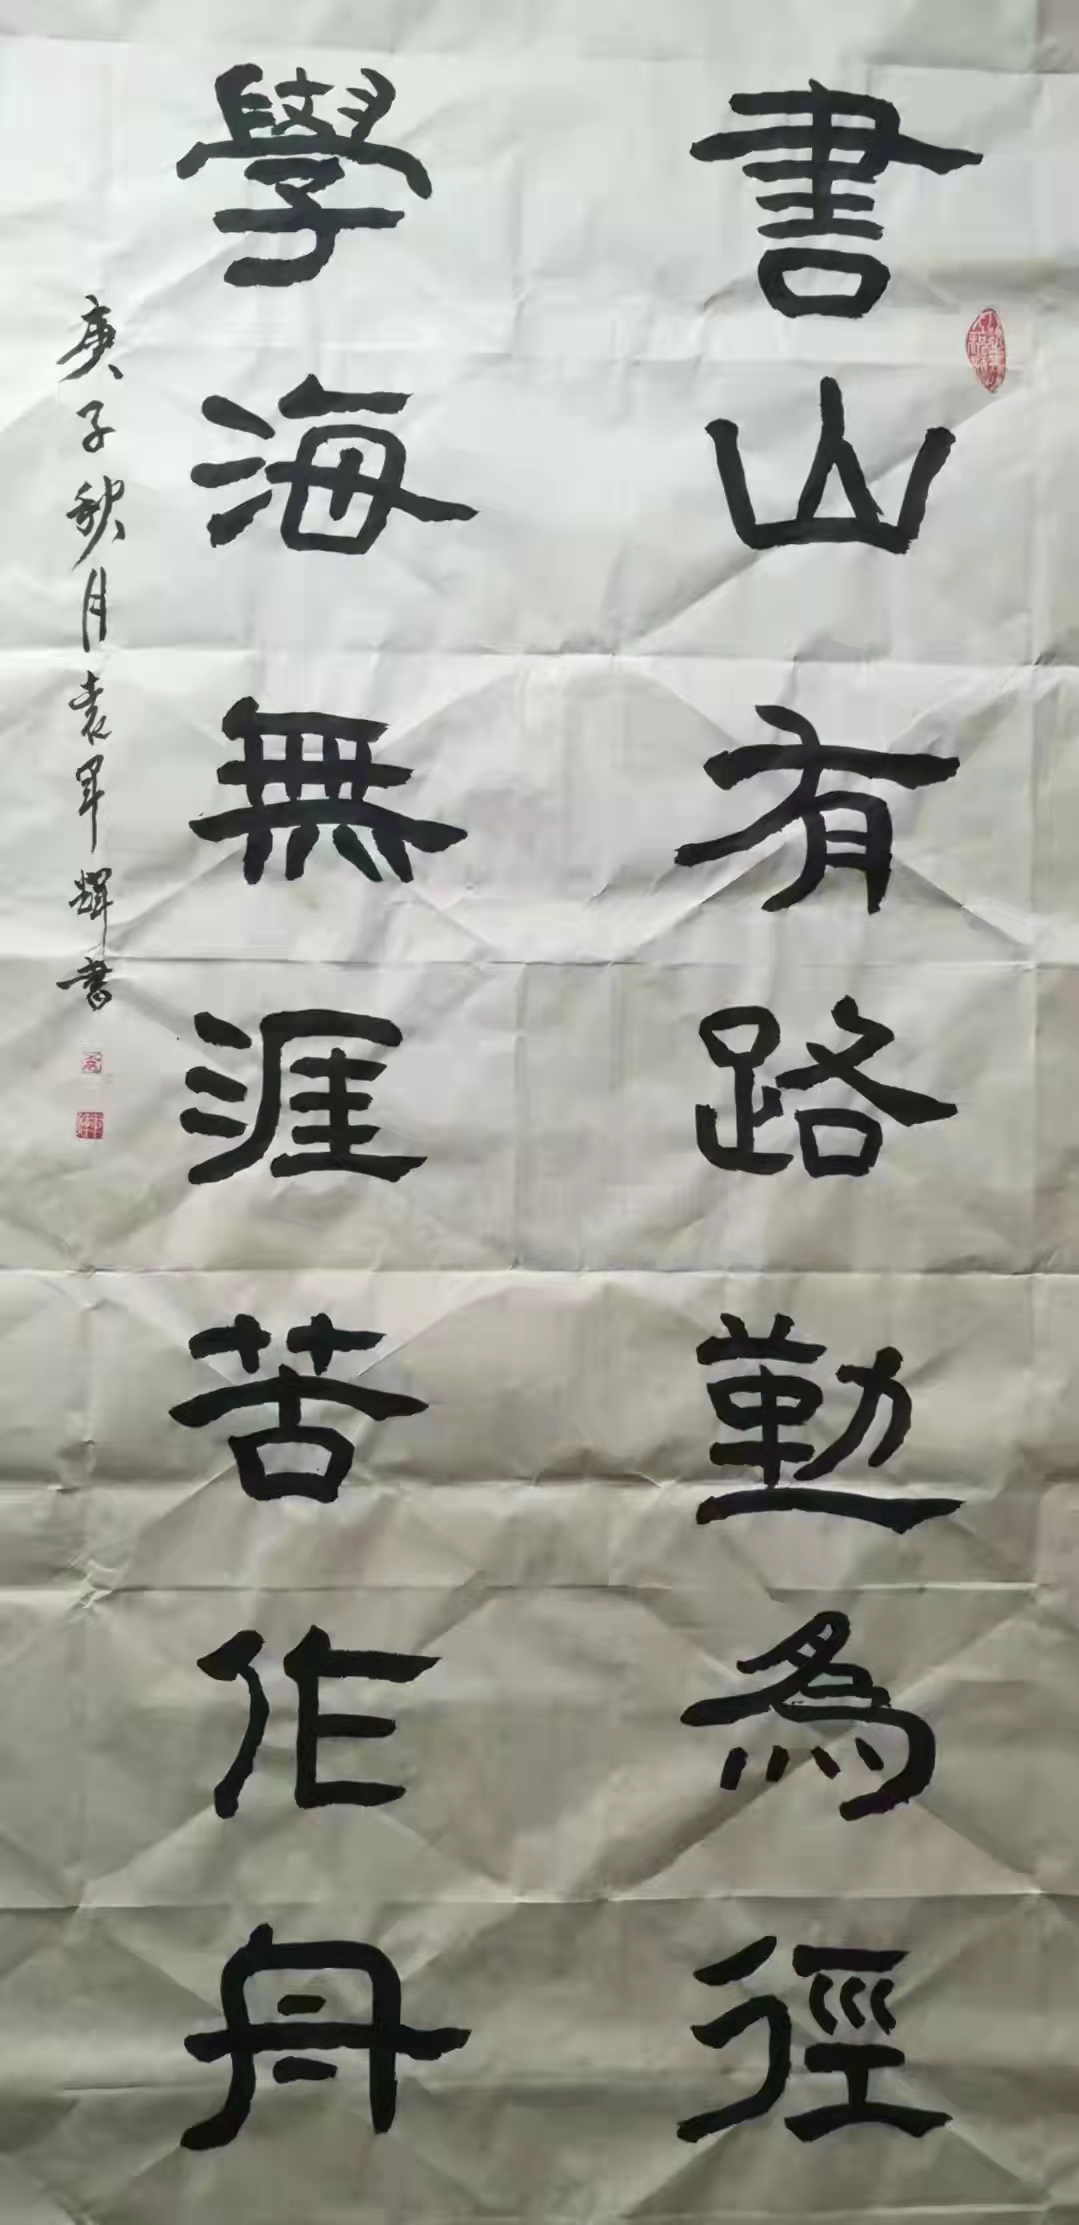 書山有路勤為徑
學海無涯苦作舟
庚子秋月袁軍輝書